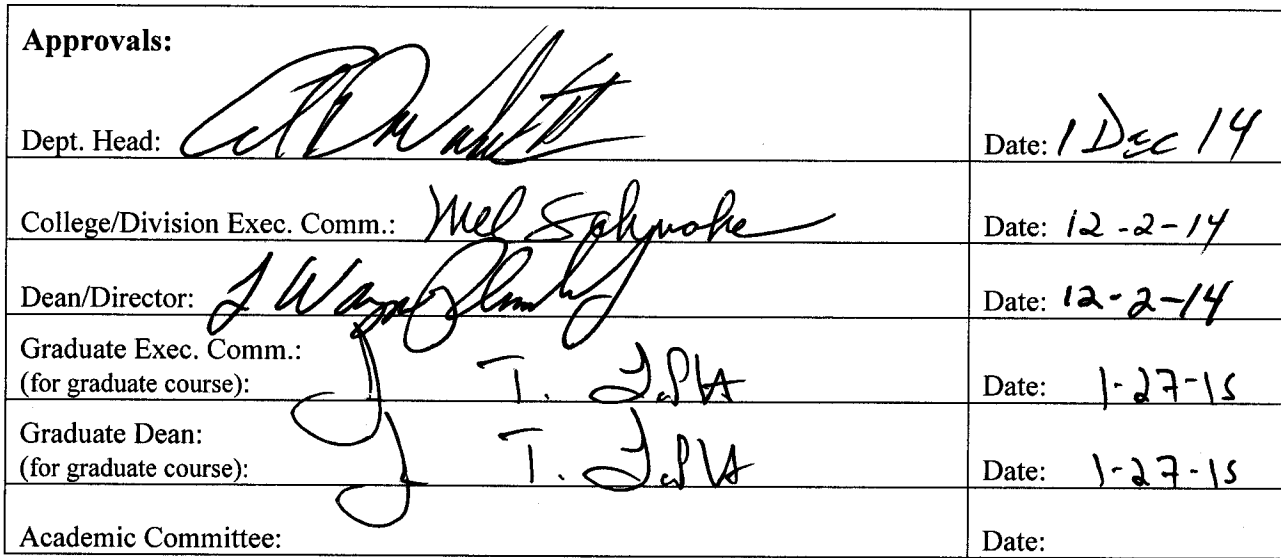 Approvals:
Dept. Head: Date: 1 Dec 14
College/Division Exec. Comm.: Mel Date: 12-2-14
Dean/Director: L Wayne Date: 12-2-14
Graduate Exec. Comm.:
(for graduate course): J T. Date: 1-27-15
Graduate Dean:
(for graduate course): J T. Date: 1-27-15
Academic Committee: Date: